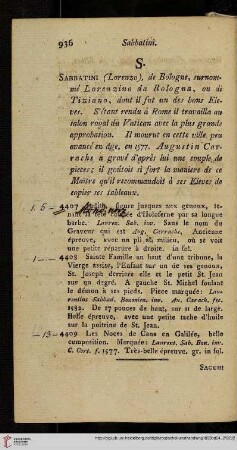 936 Sabbatini.
S.
SABBATINI (Lorenzo), de Bologne, surnom-
mé Lorenzino da Bologna, ou di
Tiziano, dont il fut un des bons Ele-
ves. S'étant rendu à Rome il travailla au
salon royal du Vatican avec la plus grande
approbation. Il mourut en cette ville peu
avancé en âge, en 1577. Augustin Car-
rache a gravé d'après lui une couple de
pieces; il goûtoit si fort la maniere de ce
Maitre qu'il recommandoit à ses Eleves de
copier ses tableaux.
4407 figure jusques aux genoux, te-
nant la tête d'Holoferne par sa longue
barbe. Lauren. Sab. inv. Sans le nom du
Graveur qui est Aug. Carrache, Ancienne
épreuve, avec un pli au milieu, où se voit
une petite répature à droite. in fol.
— 1 — 4408 Sainte Famille au haut d'une tribune, la
Vierge assise, l'Enfant sur un de ses genoux,
St. Joseph derriere elle et le petit St Jean
sur un degré. A gauche St. Michel foulant
le démon à ses pieds. Piece marquée: Lau-
rentius Sabbad. Bononien. inv. Au. Carach. fec.
1582. De 17 pouces de haut, sur 11 de large.
Belle épreuve, avec une petite tache d'huile
sur la poitrine de St. Jean.
— 13 — 4409 Les Noces de Cana en Galilée, belle
composition. Marquée: Laurent. Sab. Bon. inv.
C. Cort. f. 1577. Très-belle épreuve. gr. in fol.
SACCHI